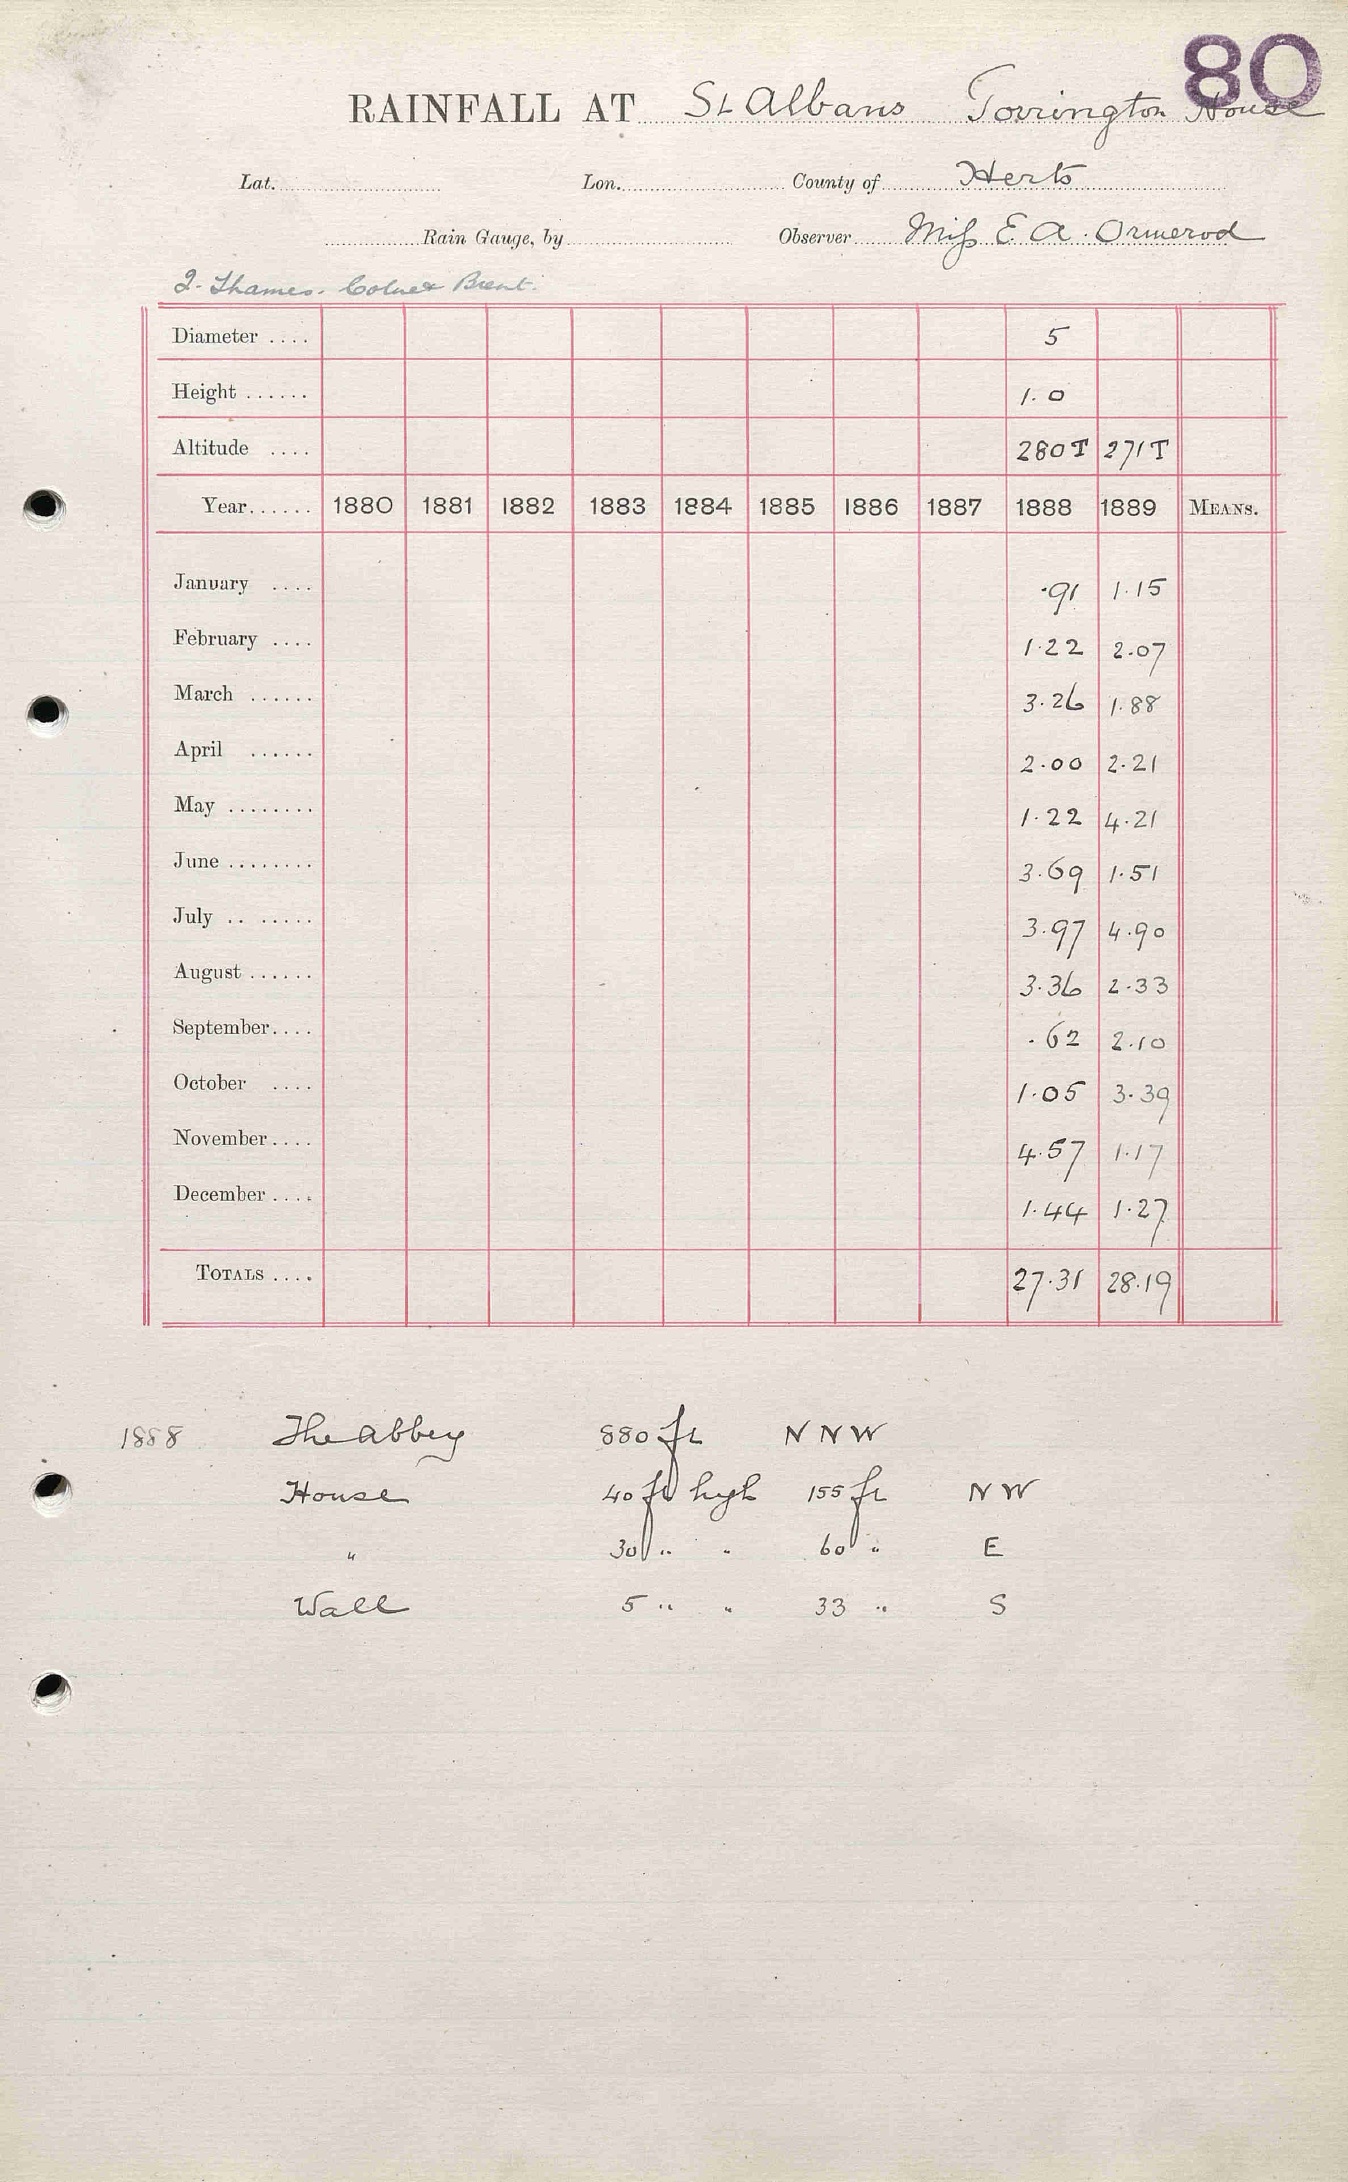 80
RAINFALL AT St Albans Torrington House
Lat. Lon. County of Herts
Rain Gauge, by Observer Miss E. A. Ormerod
2. Thames. Colne & Brent.
Diameter .... 5
Height ...... 1.0
Altitude .... 280T 271T
Year...... 1880 1881 1882 1883 1884 1885 1886 1887 1888 1889 MEANS.
January .... .91 1.15
February .... 1.22 2.07
March ...... 3.26 1.88
April ...... 2.00 2.21
May ........ 1.22 4.21
June ........ 3.69 1.51
July .. ..... 3.97 4.90
August ...... 3.36 2.33
September.... .62 2.10
October .... 1.05 3.39
November.... 4.57 1.17
December .... 1.44 1.27
TOTALS .... 27.31 28.19
1888 The Abbey 880 ft N N W
House 40 ft high 155 ft N W
" 30 " " 60 " E
Wall 5 " " 33 " S